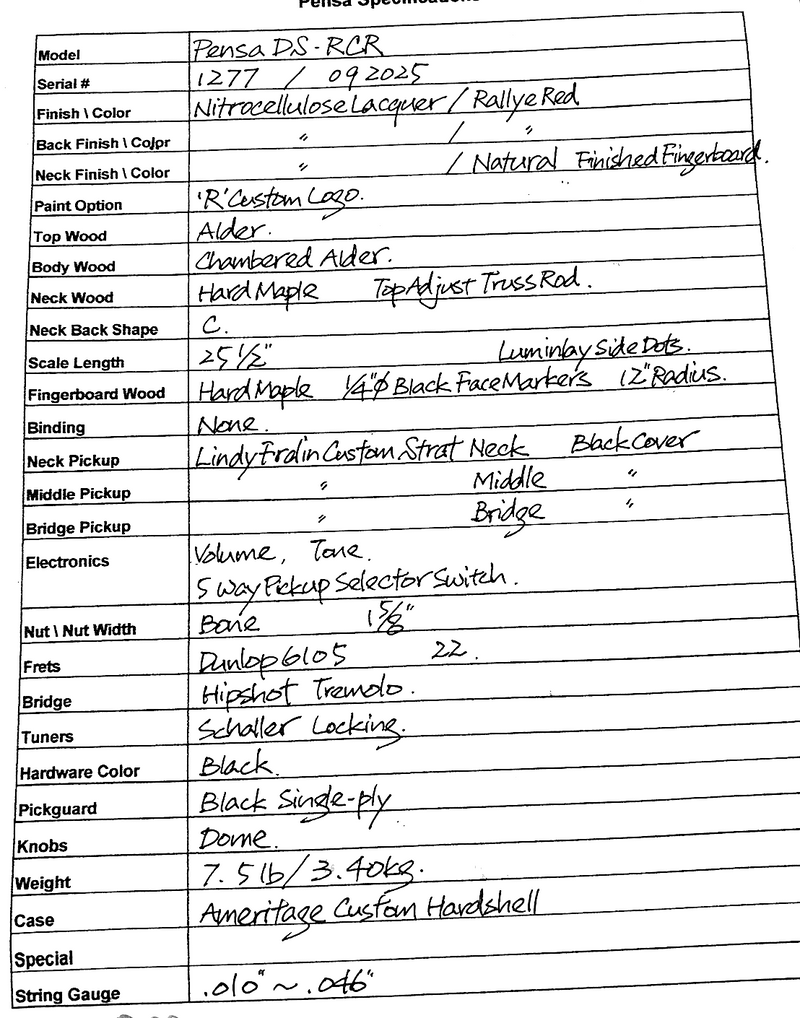 Pensa Specifications
Model Pensa DS-RCR
Serial # 1277 / 092025
Finish \ Color Nitrocellulose Lacquer / Rallye Red
Back Finish \ Color 〃 / 〃
Neck Finish \ Color 〃 / Natural Finished Fingerboard.
Paint Option 'R' Custom Logo.
Top Wood Alder.
Body Wood Chambered Alder.
Neck Wood Hard Maple Top Adjust Truss Rod.
Neck Back Shape C.
Scale Length 25 1/2" Luminlay Side Dots.
Fingerboard Wood Hard Maple 1/4"φ Black Face Markers 12" Radius.
Binding None.
Neck Pickup Lindy Fralin Custom Strat Neck Black Cover
Middle Pickup 〃 Middle 〃
Bridge Pickup 〃 Bridge 〃
Electronics Volume, Tone.
5 way Pickup Selector Switch.
Nut \ Nut Width Bone 1 5/8"
Frets Dunlop 6105 22.
Bridge Hipshot Tremolo.
Tuners Schaller Locking.
Hardware Color Black.
Pickguard Black Single-ply
Knobs Dome.
Weight 7.5 lb / 3.40kg.
Case Ameritage Custom Hardshell
Special
String Gauge .010" ~ .046"